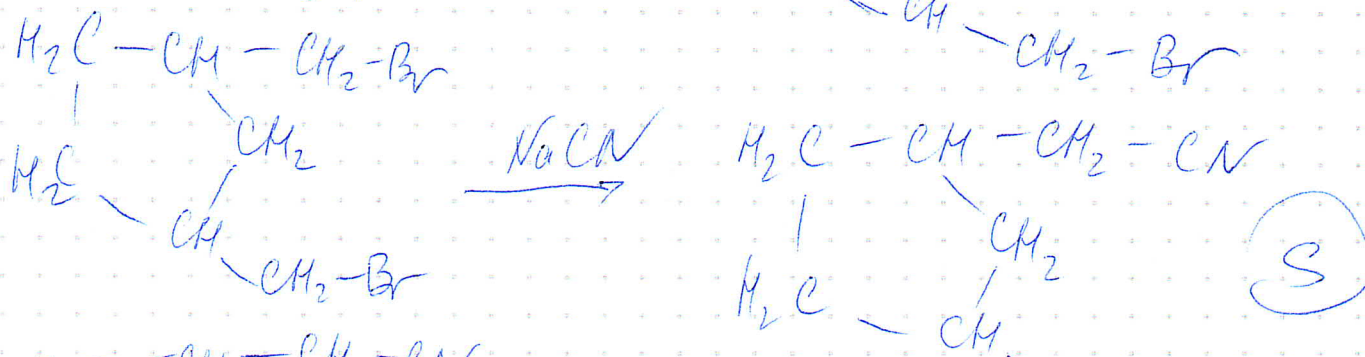 CH
CH₂-Br
H₂C - CH - CH₂-Br
CH₂
H₂C
CH
CH₂-Br
NaCN
H₂C - CH - CH₂ - CN
CH₂
H₂C
CH
S
CH - CN